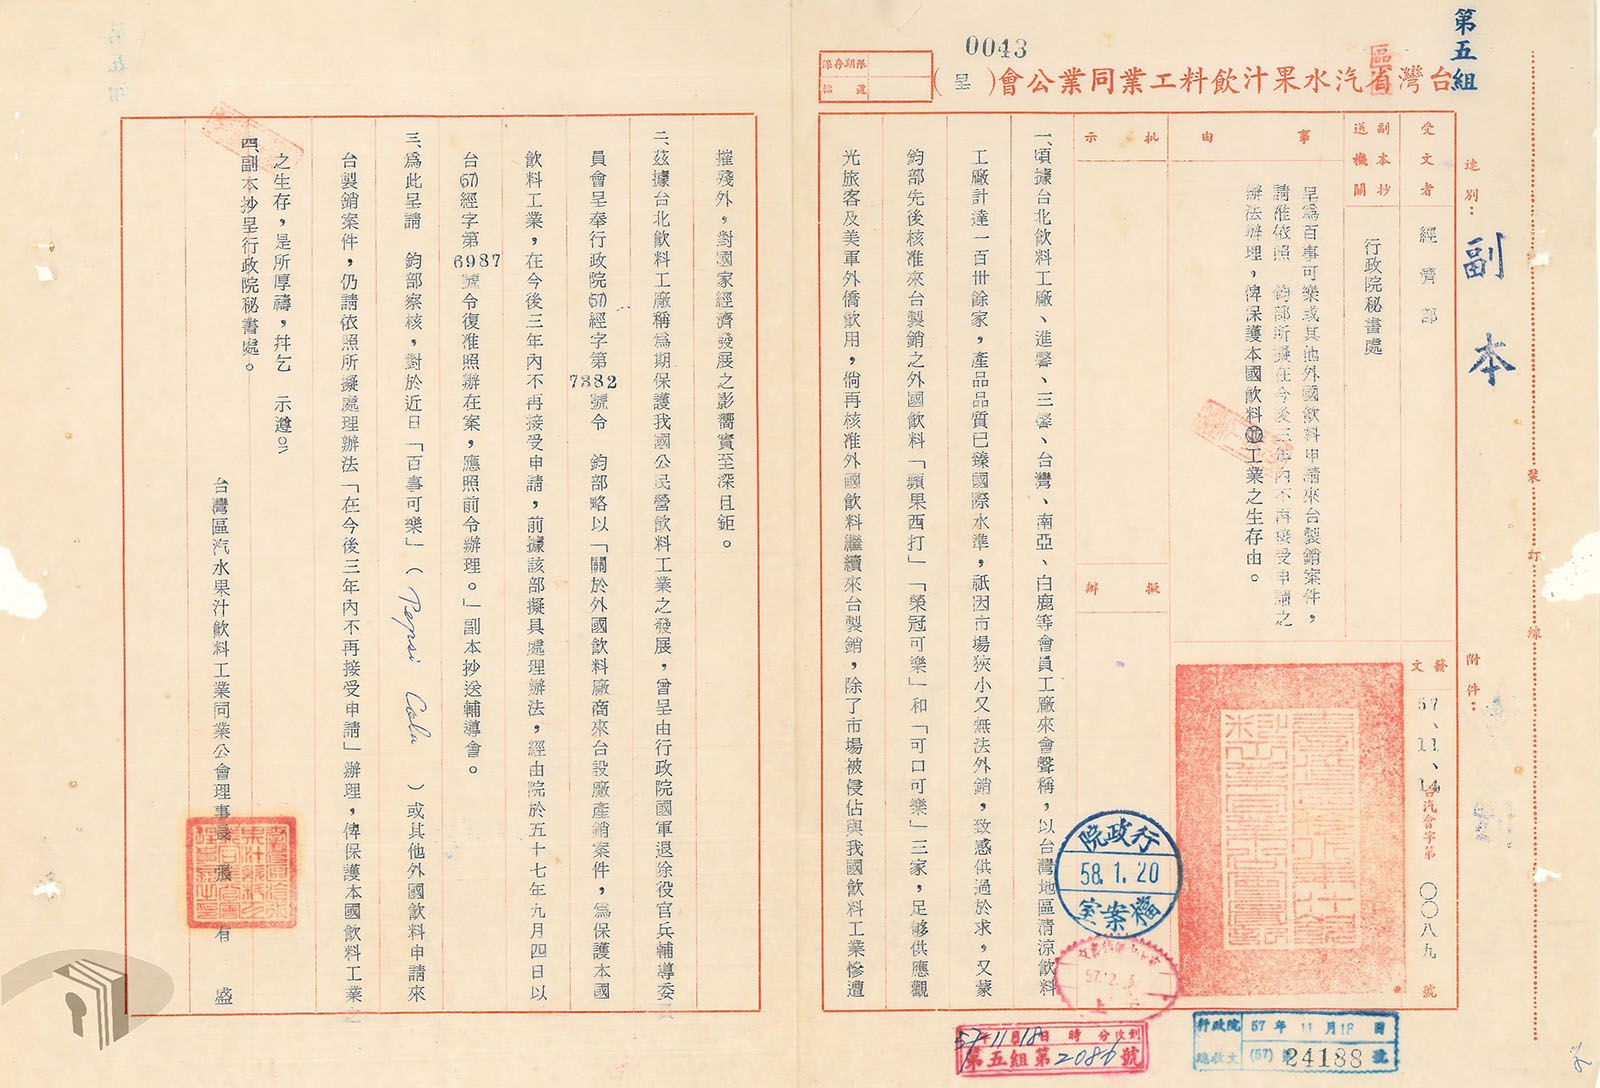 第五組
0043
台灣省汽水果汁飲料工業同業公會（呈）
區
保存期限
號
速別：
副本
受文者
經濟部
副本抄送機關
行政院秘書處
事由
呈為百事可樂或其他外國飲料申請來台製銷案件，
請准依照　鈞部所擬在今後三年內不再接受申請之
辦法辦理，俾保護本國飲料工業之生存由。
批示
擬辦
附件：
發文
57、11、14
台汽會字第
〇〇八九
號
裝訂線
一、頃據台北飲料工廠、進馨、三馨、台灣、南亞、白鹿等會員工廠來會聲稱，以台灣地區清涼飲料
工廠計達一百卅餘家，產品品質已臻國際水準，祇因市場狹小又無法外銷，致感供過於求，又蒙
鈞部先後核准來台製銷之外國飲料「蘋果西打」「榮冠可樂」和「可口可樂」三家，足夠供應觀
光旅客及美軍外僑飲用，倘再核准外國飲料繼續來台製銷，除了市場被侵佔與我國飲料工業慘遭
摧殘外，對國家經濟發展之影響實至深且鉅。
二、茲據台北飲料工廠稱為期保護我國公民營飲料工業之發展，曾呈由行政院國軍退除役官兵輔導委
員會呈奉行政院(57)經字第7382號令　鈞部略以「關於外國飲料廠商來台設廠產銷案件，為保護本國
飲料工業，在今後三年內不再接受申請，前據該部擬具處理辦法，經由院於五十七年九月四日以
台(57)經字第6987號令復准照辦在案，應照前令辦理。」副本抄送輔導會。
三、為此呈請　鈞部察核，對於近日「百事可樂」（Pepsi Cola）或其他外國飲料申請來
台製銷案件，仍請依照所擬處理辦法「在今後三年內不再接受申請」辦理，俾保護本國飲料工業之
之生存，是所厚禱，并乞　示遵。
四、副本抄呈行政院秘書處。
台灣區汽水果汁飲料工業同業公會理事長　張有盛
行政院
58.1.20
檔案室
57.12.5
57年11月18日　時　分收到
第五組第2086號
行政院
總收文
57年11月18日
(57)第24188號